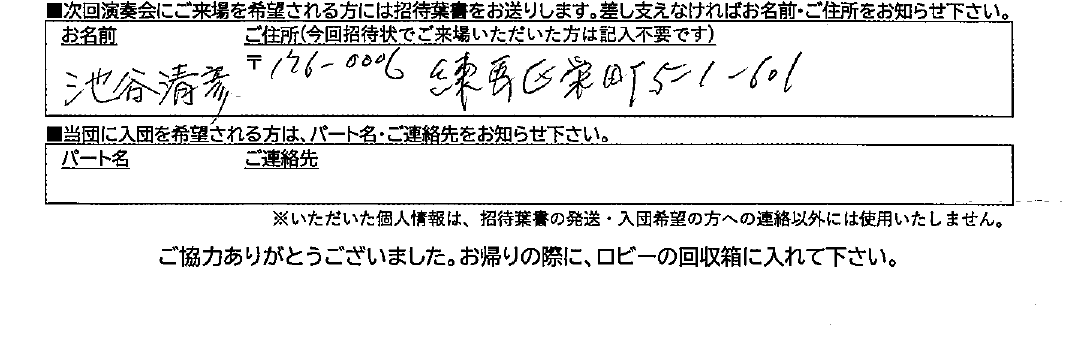 ■次回演奏会にご来場を希望される方には招待葉書をお送りします。差し支えなければお名前・ご住所をお知らせ下さい。
お名前 ご住所(今回招待状でご来場いただいた方は記入不要です)
池谷清彦 〒176-0006 練馬区栄町5-1-601
■当団に入団を希望される方は、パート名・ご連絡先をお知らせ下さい。
パート名 ご連絡先
※いただいた個人情報は、招待葉書の発送・入団希望の方への連絡以外には使用いたしません。
ご協力ありがとうございました。お帰りの際に、ロビーの回収箱に入れて下さい。